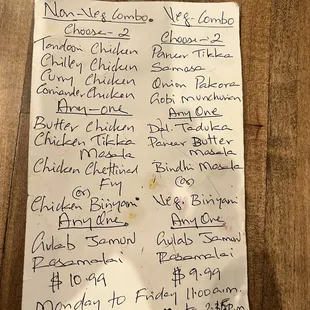 Non-Veg Combo.
Choose-2
Tandoori Chicken
Chilley Chicken
Curry Chicken
Coriander Chicken
Any-one
Butter Chicken
Chicken Tikka
Masala
Chicken Chettinad
Fry
(or)
Chicken Biriyani
Any One
Gulab Jamun
Rasamalai
$10.99
Veg-Combo
Choose-2
Paneer Tikka
Samosa
Onion Pakora
Gobi Munchurian
Any One
Dal Taduka
Paneer Butter
Masala
Bindhi Masala
(or)
Veg. Biriyani
Any One
Gulab Jamun
Rasamalai
$9.99
Monday to Friday 11:00a.m.
to